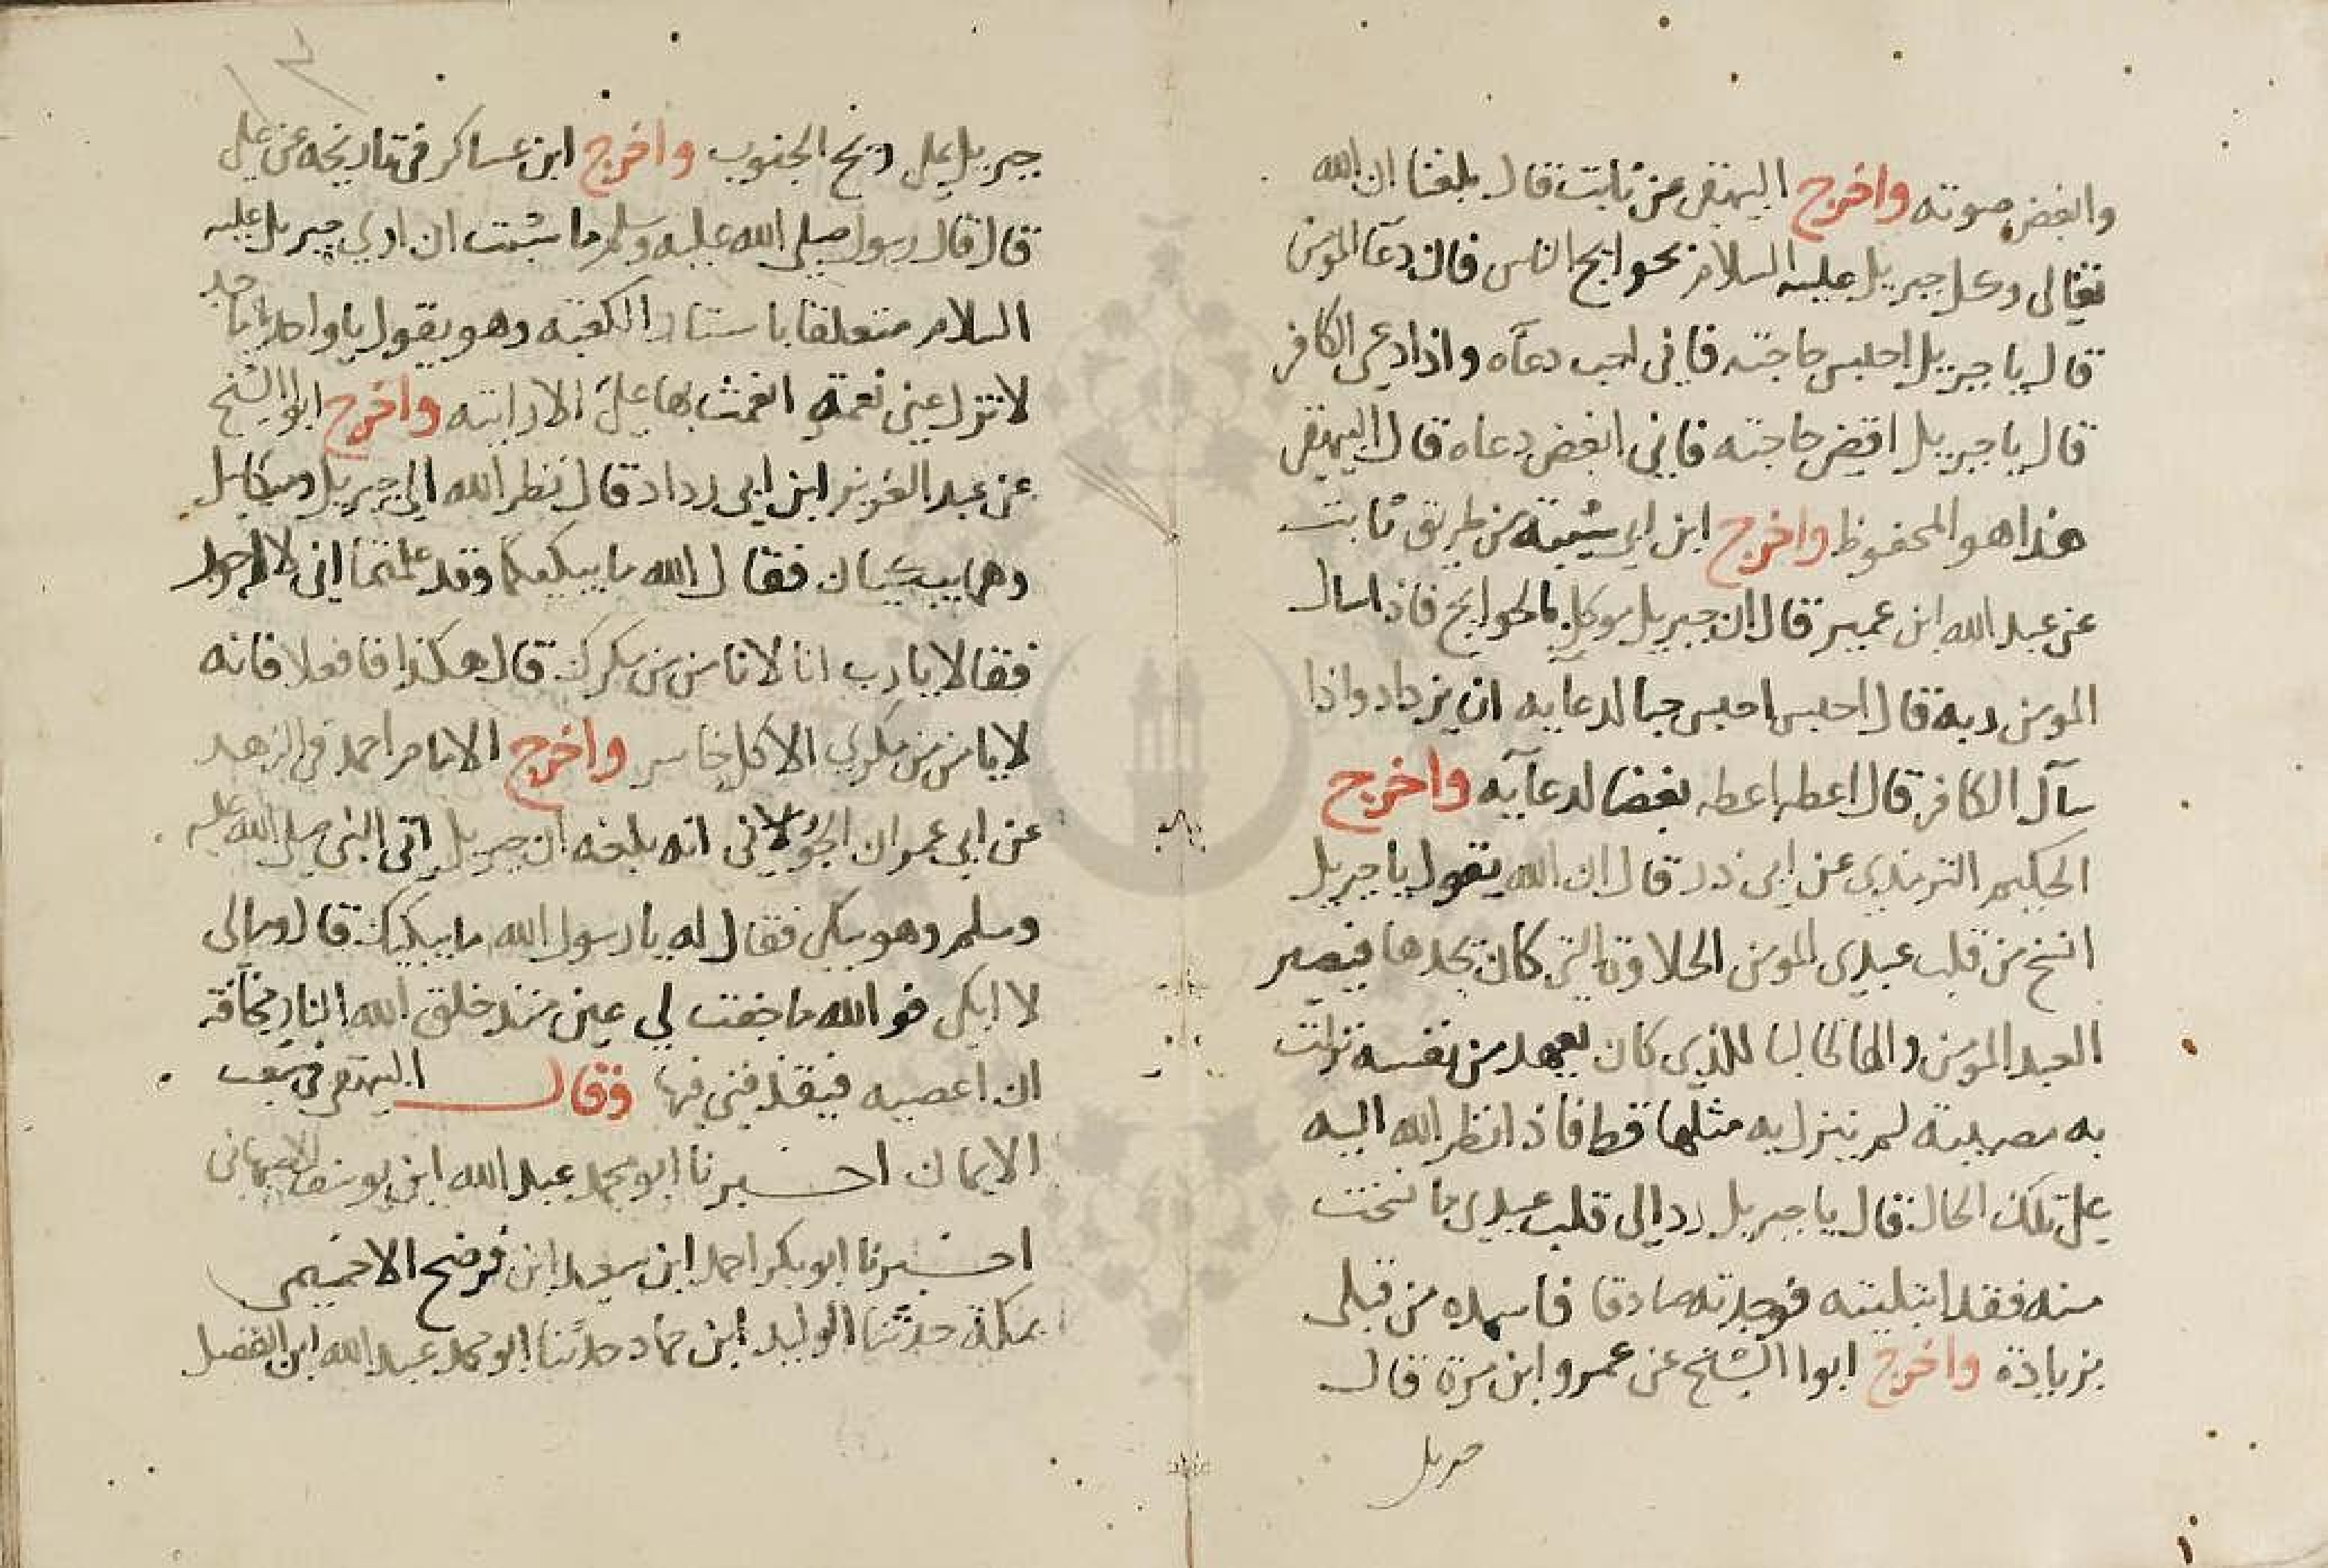 وابغض صوته واخرج البيهقي عن ثابت قال بلغنا ان الله
تعالى وكل جبريل عليه السلام بحوايج الناس فان دعآ المومن
قال يا جبريل احبس حاجته فاني احب دعآه واذا دعى الكافر
قال يا جبريل اقض حاجته فاني ابغض دعاه قال البيهقي
هذا هو المحفوظ واخرج ابن ابي شيبة من طريق ثابت
عن عبد الله ابن عمير قال ان جبريل موكل بالحوايج فاذا سال
المومن ربه قال احبس احبس حبا لدعايه ان يزداد واذا
سآل الكافر قال اعطه اعطه بغضا لدعآيه واخرج
الحكيم الترمذي عن ابي ذر قال ان الله يقول يا جبريل
انسخ من قلب عبدي المومن الحلاوة التي كان يجدها فيصير
العبد المومن والها طالبا للذي كان يعهد من نفسه نزلت
به مصيبة لم ينزل به مثلها قط فاذا نظر الله اليه
على تلك الحال قال يا جبريل رد الى قلب عبدي ما نسخت
منه فقد ابتليته فوجدته صادقا فاسمده من قبلي
بزيادة واخرج ابوا الشيخ عن عمرو ابن مرة قال
جبريل
جبريل على ريح الجنوب واخرج ابن عساكر في تاريخه عن علي
قال قال رسول صلى الله عليه وسلم ما شئت ان اري جبريل عليه
السلام متعلقا باستار الكعبة وهو يقول يا واحد يا ماجد
لا تزل عني نعمة انعمت بها علي الا رايته واخرج ابوا الشيخ
عن عبد العزيز ابن ابي رداد قال نظر الله الى جبريل وميكايل
وهما يبكيان فقال الله ما يبكيكما وقد علمتما اني لا اجور
فقالا يا رب انا لا نامن من مكرك قال هكذا فافعلا فانه
لا يامن من مكري الا كل خاسر واخرج الامام احمد في الزهد
عن ابي عمران الجولاني انه بلغه ان جبريل اتى النبي صلى الله عليه
وسلم وهو يبكي فقال له يا رسول الله ما يبكيك قال ومالى
لا ابكي فو الله ما جفت لي عين منذ خلق الله النار مخافة
ان اعصيه فيقذفني فيها وقال البيهقي في شعب
الايمان اخبرنا ابو محمد عبد الله ابن يوسف الاصبهاني
اخبرنا ابو بكر احمد ابن سعيد ابن فرضخ الاخميمى
بمكة حدثنا الوليد ابن حماد حدثنا ابو محمد عبد الله ابن الفضل